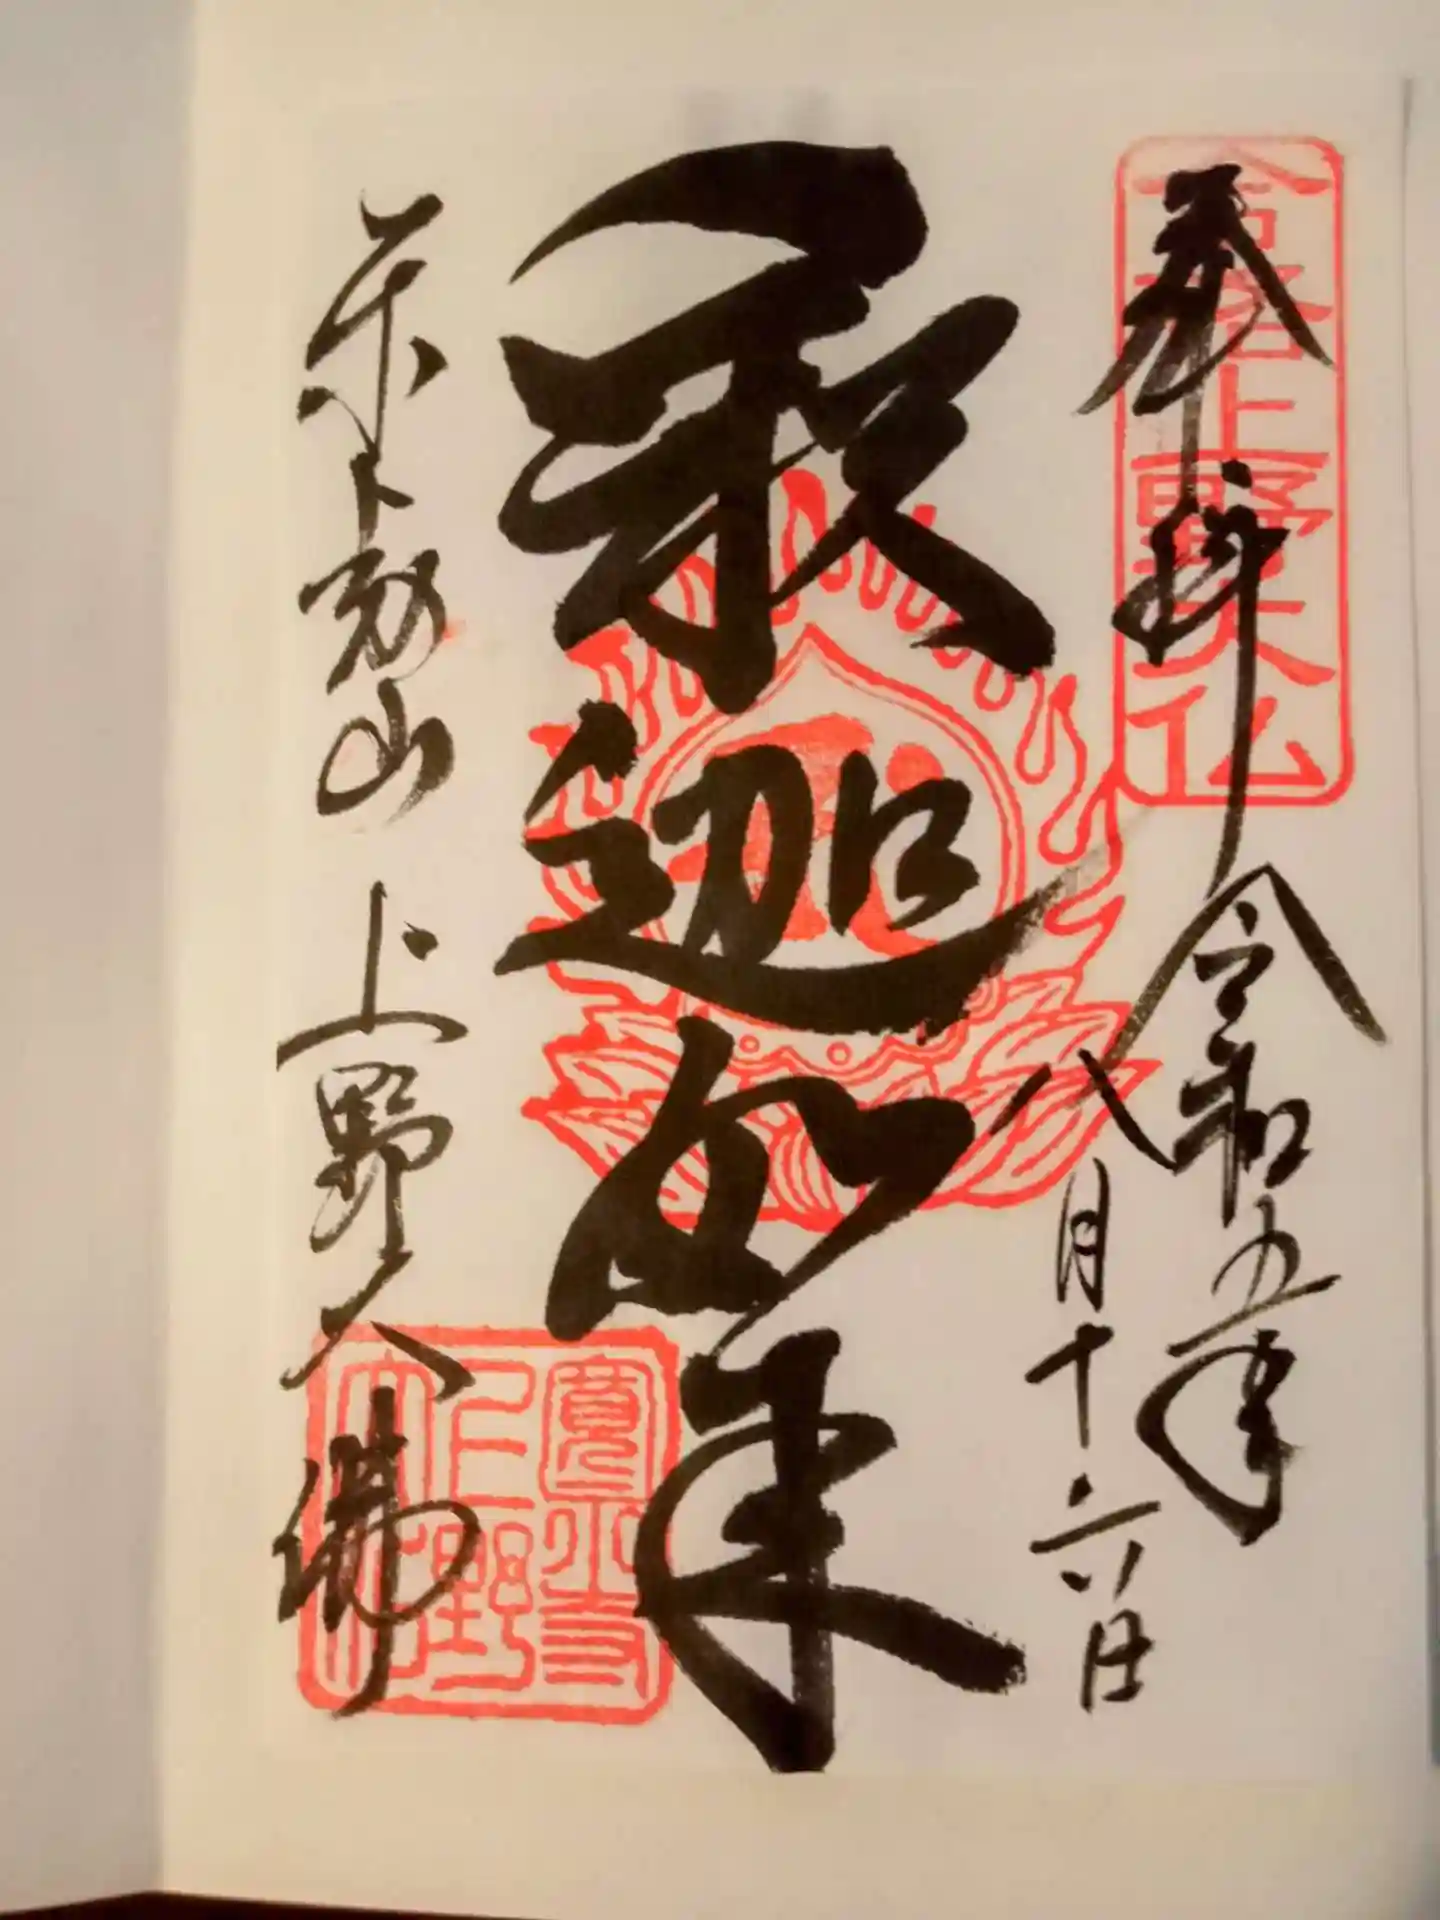 合格上野大仏
奉拝
令和五年
八月十六日
釈迦如来
東叡山 上野大佛
寛永寺
上野
大佛